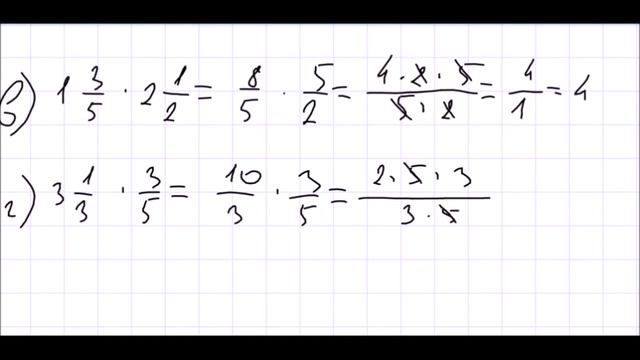 в) 1 3/5 · 2 1/2 = 8/5 · 5/2 = 4·2·5/5·2 = 4/1 = 4
г) 3 1/3 · 3/5 = 10/3 · 3/5 = 2·5·3/3·5